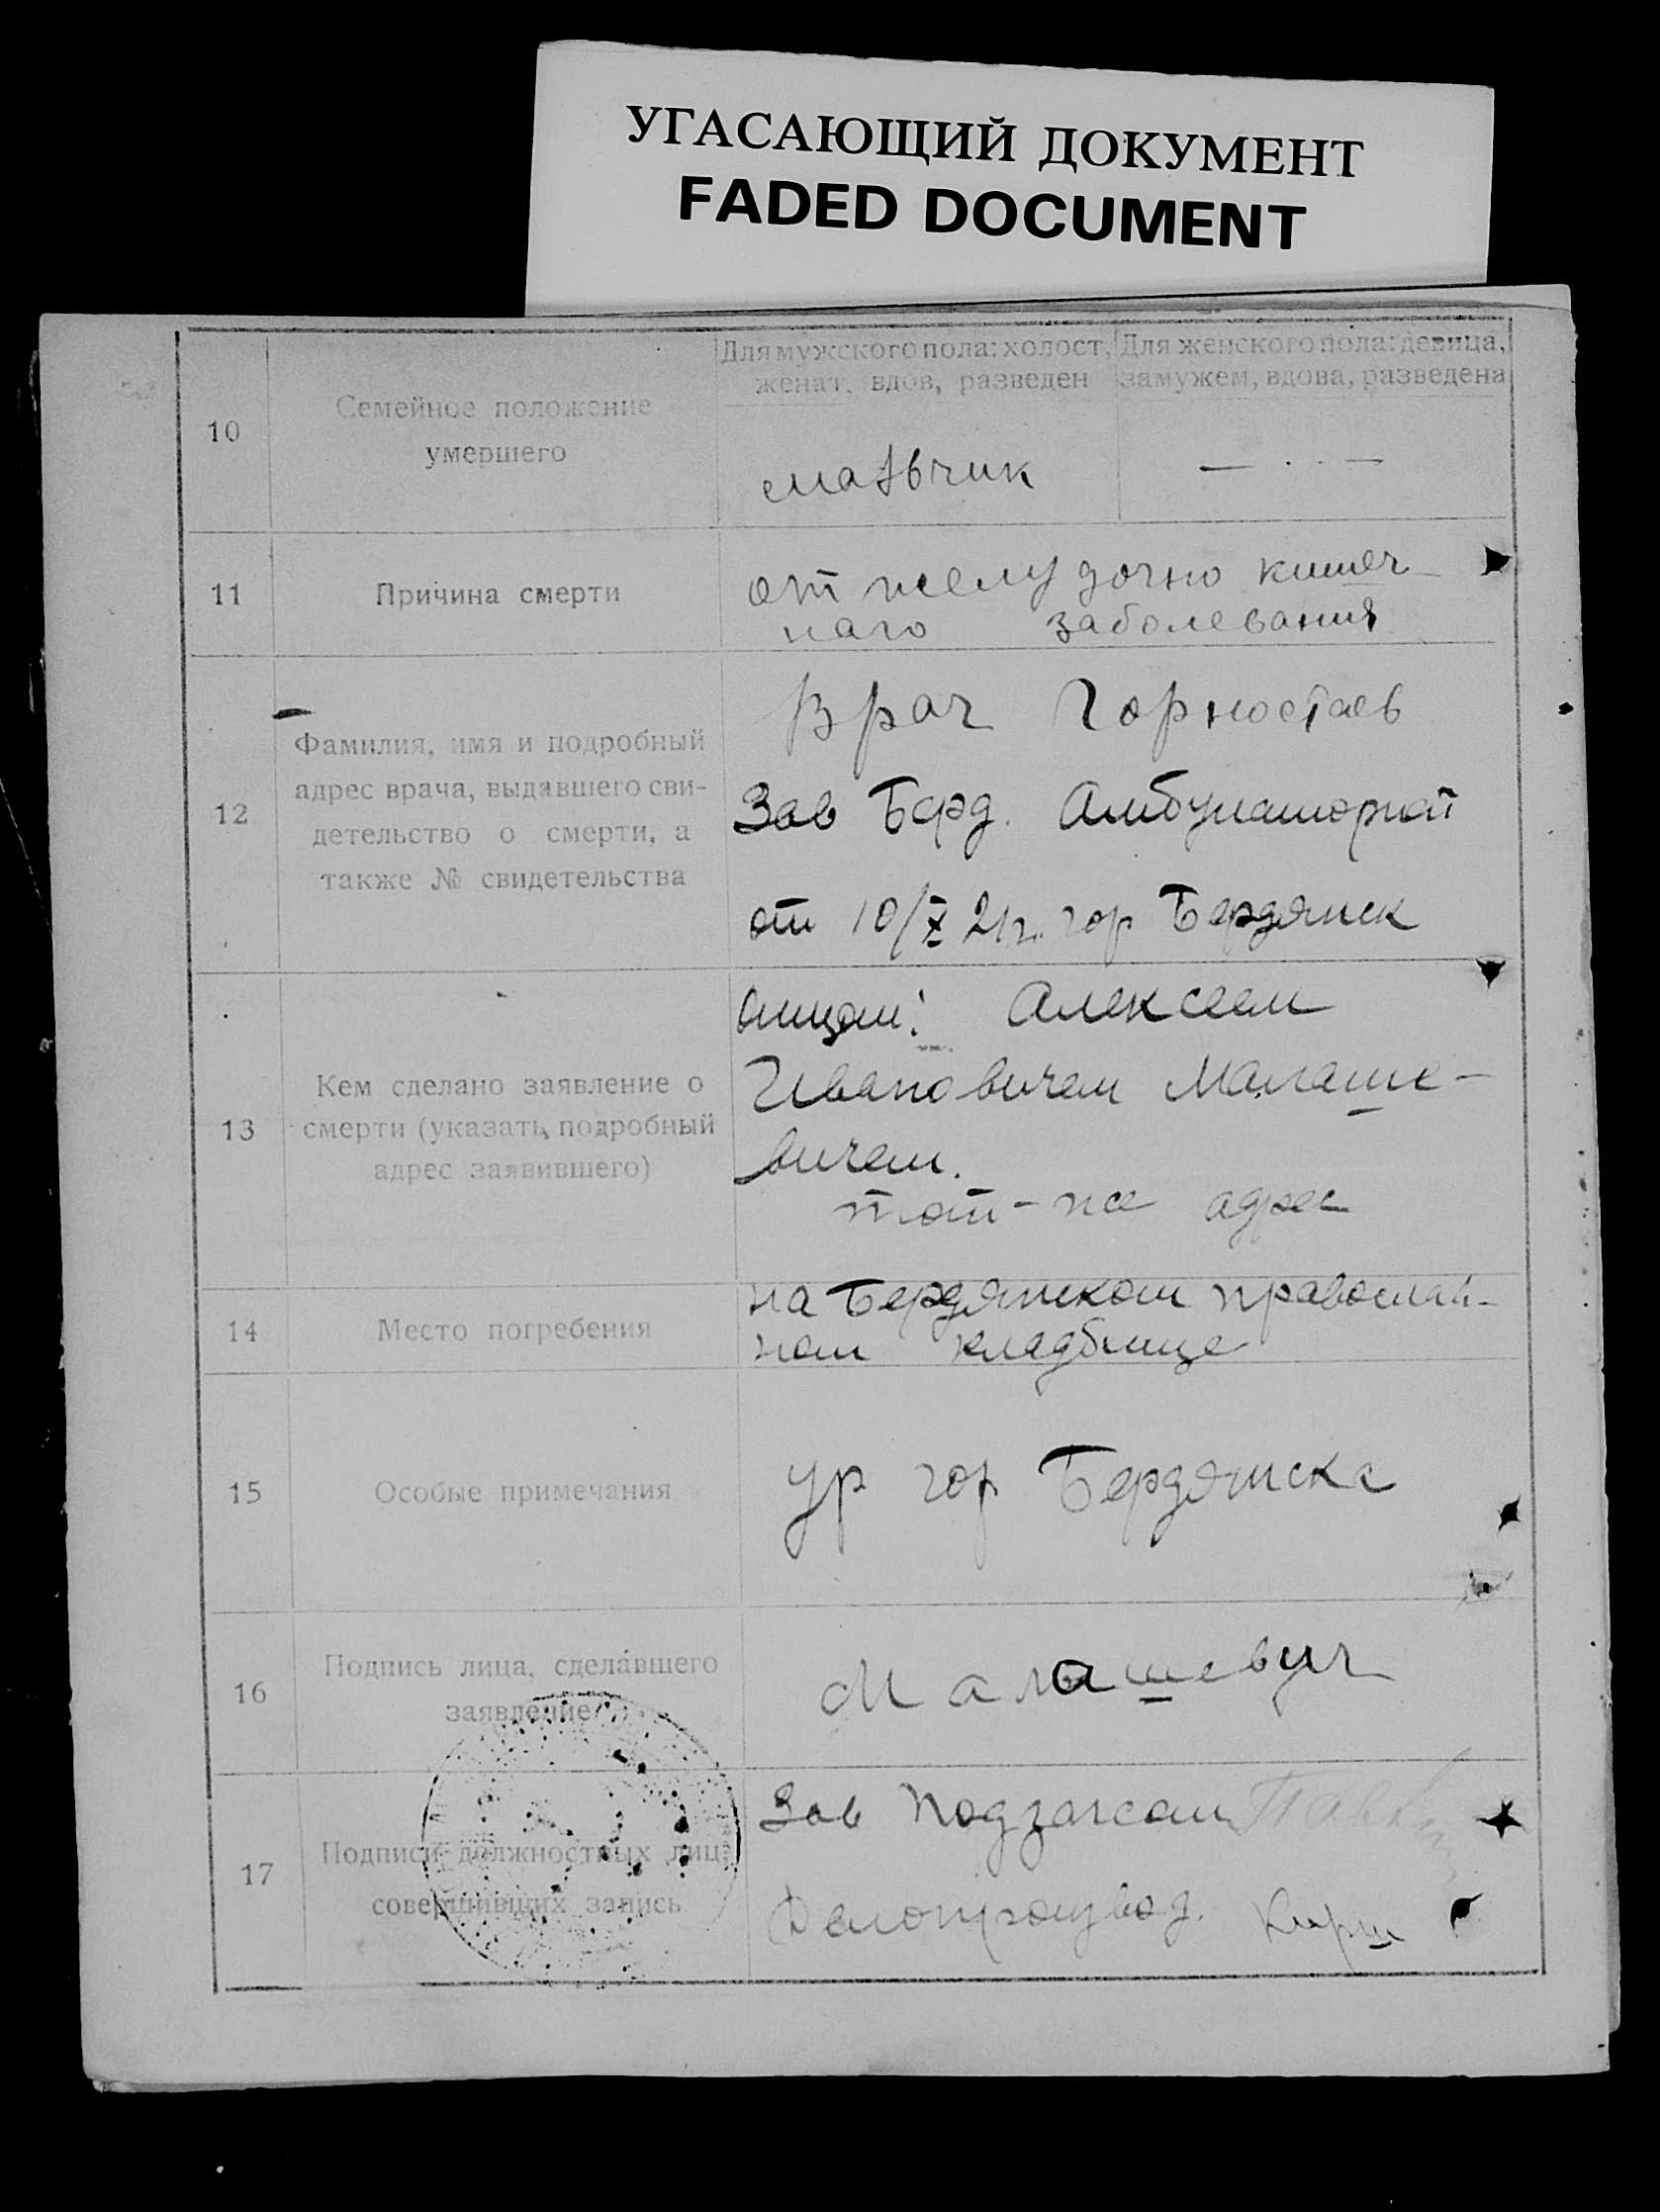 УГАСАЮЩИЙ ДОКУМЕНТ
FADED DOCUMENT
10
Семейное положение
умершего
Для мужского пола: холост,
женат, вдов, разведен
Для женского пола: девица,
замужем, вдова, разведена
мальчик
— · —
11
Причина смерти
от желудочно кишеч-
наго заболевания
12
Фамилия, имя и подробный
адрес врача, выдавшего сви-
детельство о смерти, а
также № свидетельства
Врач Горностаев
Зав Берд. Амбулаторией
от 10/X 21г. гор Бердянск
13
Кем сделано заявление о
смерти (указать подробный
адрес заявившего)
отцом: Алексеем
Ивановичем Малаше-
вичем.
тот-же адрес
14
Место погребения
на Бердянском православ-
ном кладбище
15
Особые примечания
ур гор Бердянска
16
Подпись лица, сделавшего
заявление
Малашевич
17
Подписи должностных лиц,
совершивших запись
Зав Подзагсом
Делопроизвод.